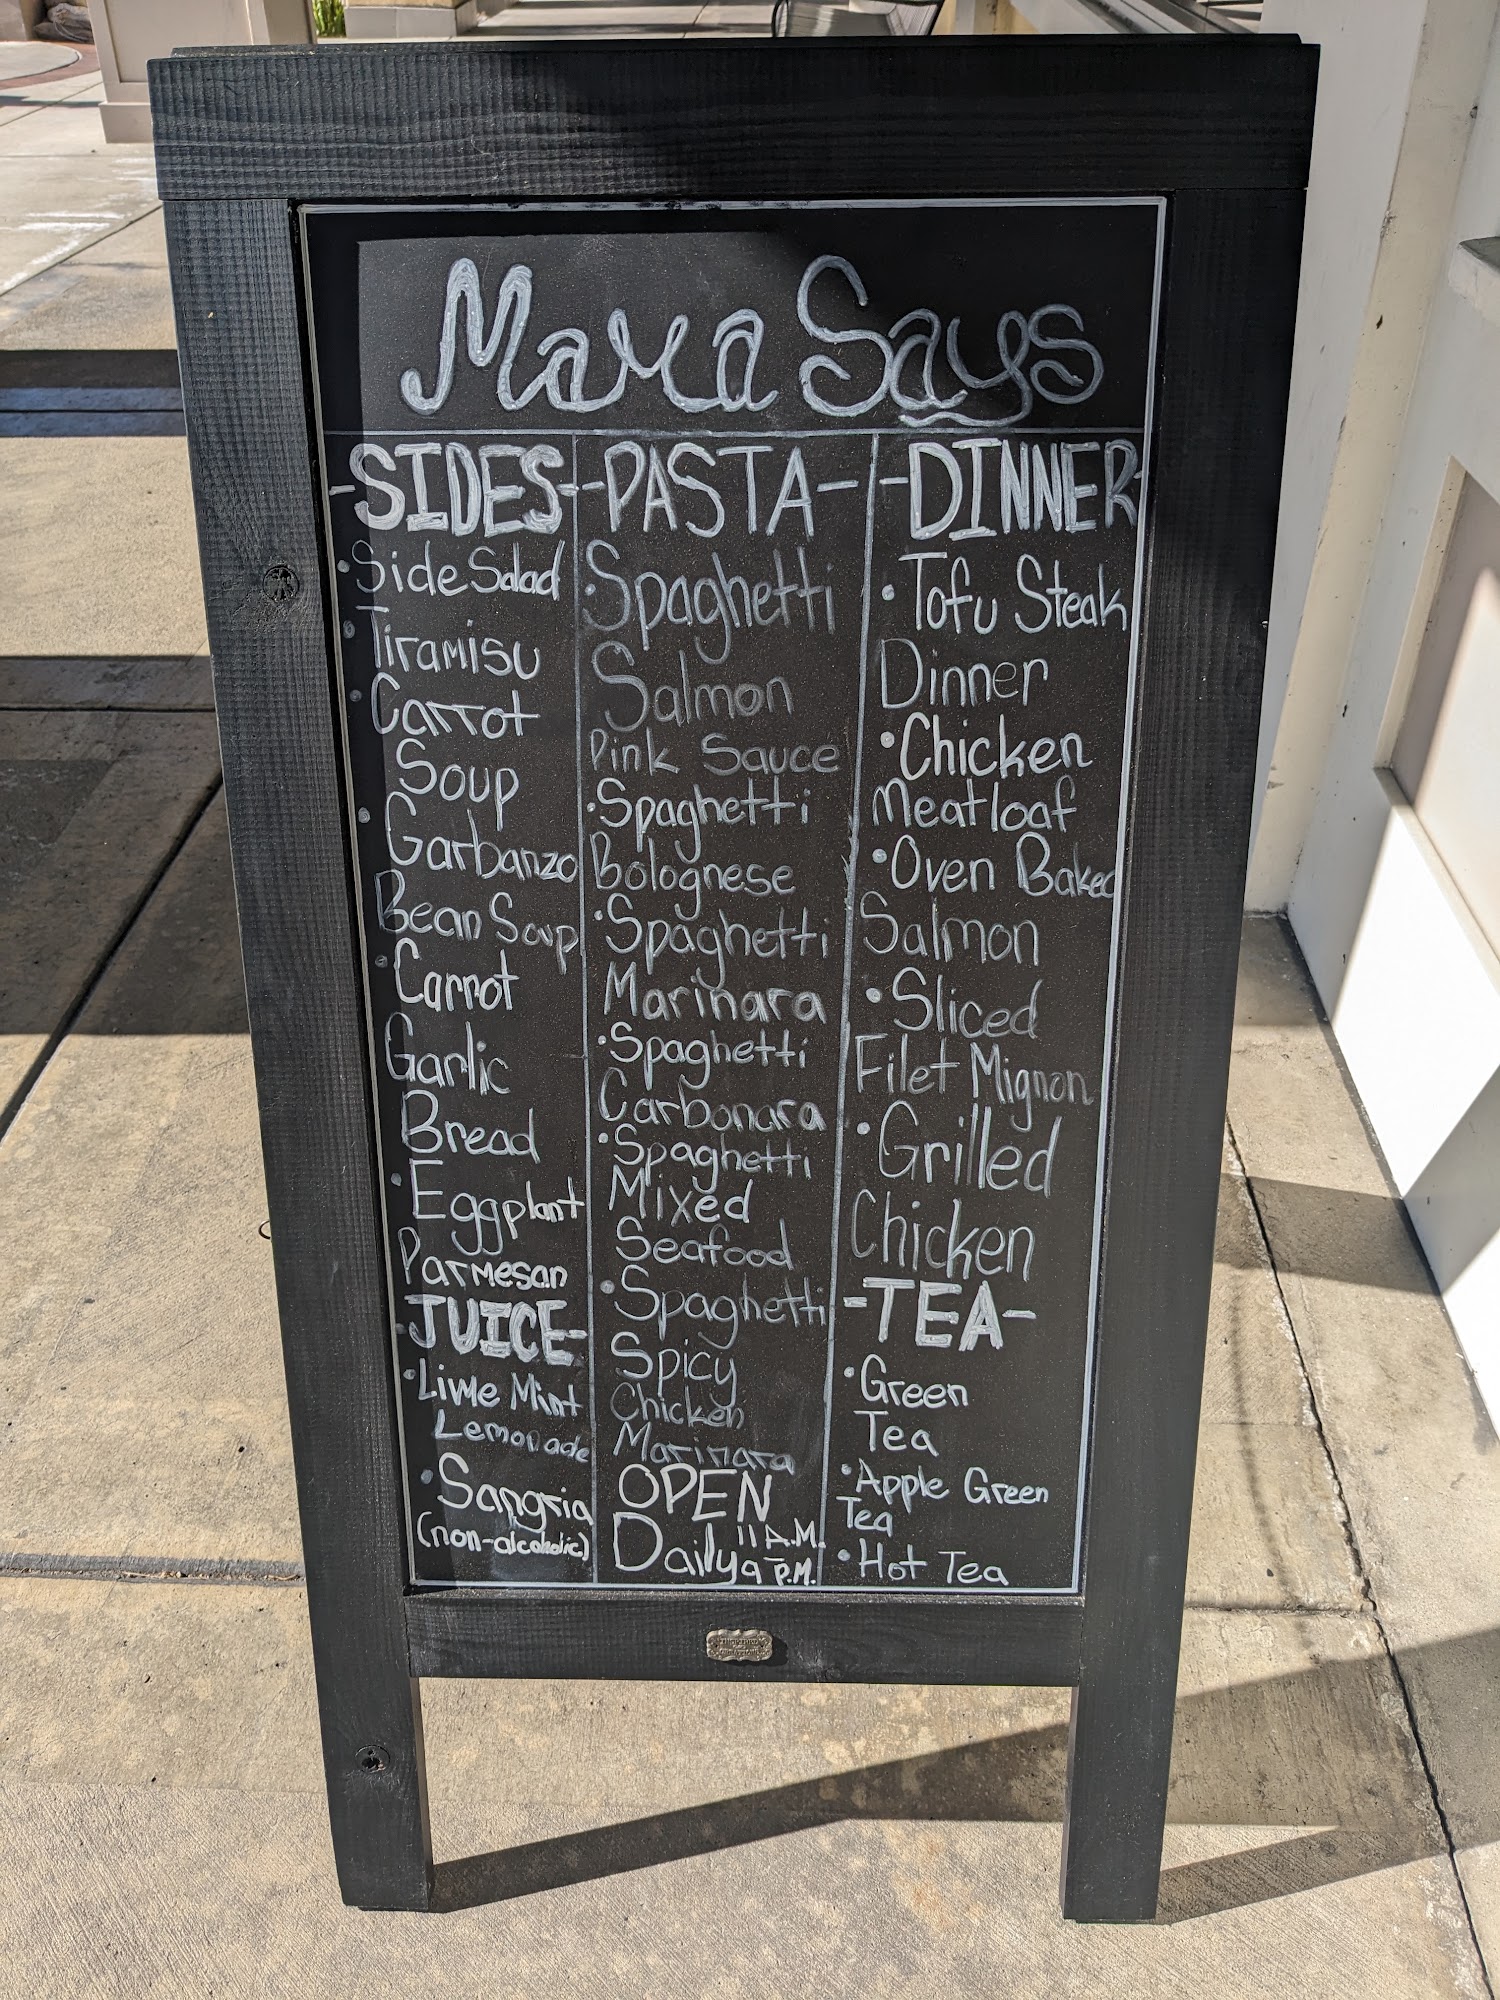 Mama Says
-SIDES-
• Side Salad
• Tiramisu
• Carrot
Soup
• Garbanzo
Bean Soup
• Carrot
Garlic
Bread
• Eggplant
Parmesan
-JUICE-
• Lime Mint
Lemonade
• Sangria
(non-alcoholic)
-PASTA-
• Spaghetti
Salmon
Pink Sauce
• Spaghetti
Bolognese
• Spaghetti
Marinara
• Spaghetti
Carbonara
• Spaghetti
Mixed
Seafood
• Spaghetti
Spicy
Chicken
Marinara
OPEN
Daily 11 A.M.
- 9 P.M.
-DINNER-
• Tofu Steak
Dinner
• Chicken
Meatloaf
• Oven Baked
Salmon
• Sliced
Filet Mignon
• Grilled
Chicken
-TEA-
• Green
Tea
• Apple Green
Tea
• Hot Tea